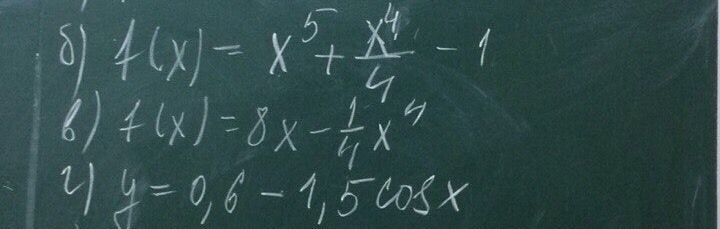 б) f(x) = x⁵ + x⁴/4 - 1
в) f(x) = 8x - 1/4 x⁴
г) y = 0,6 - 1,5 cos x